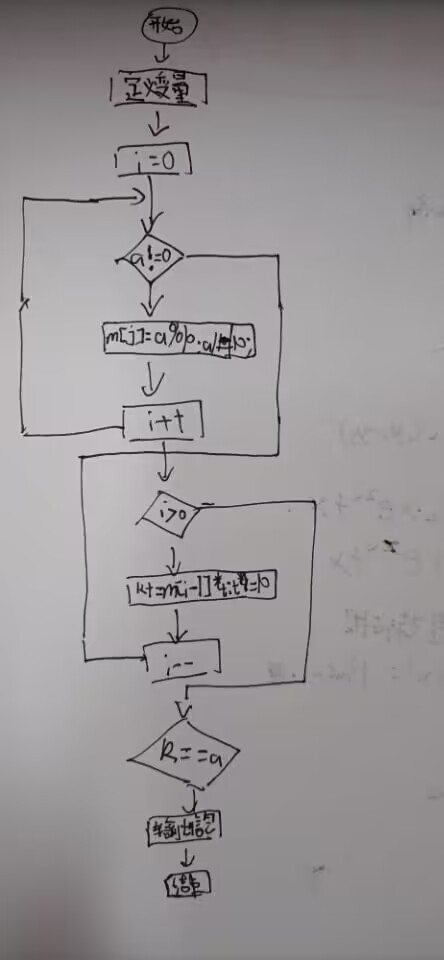 开始
定义变量
i=0
a!=0
m[i]=a%10.a/=10;
i++
i>0
k+=m[i-1]*t;t*=10
i--
k==a
输出
结束